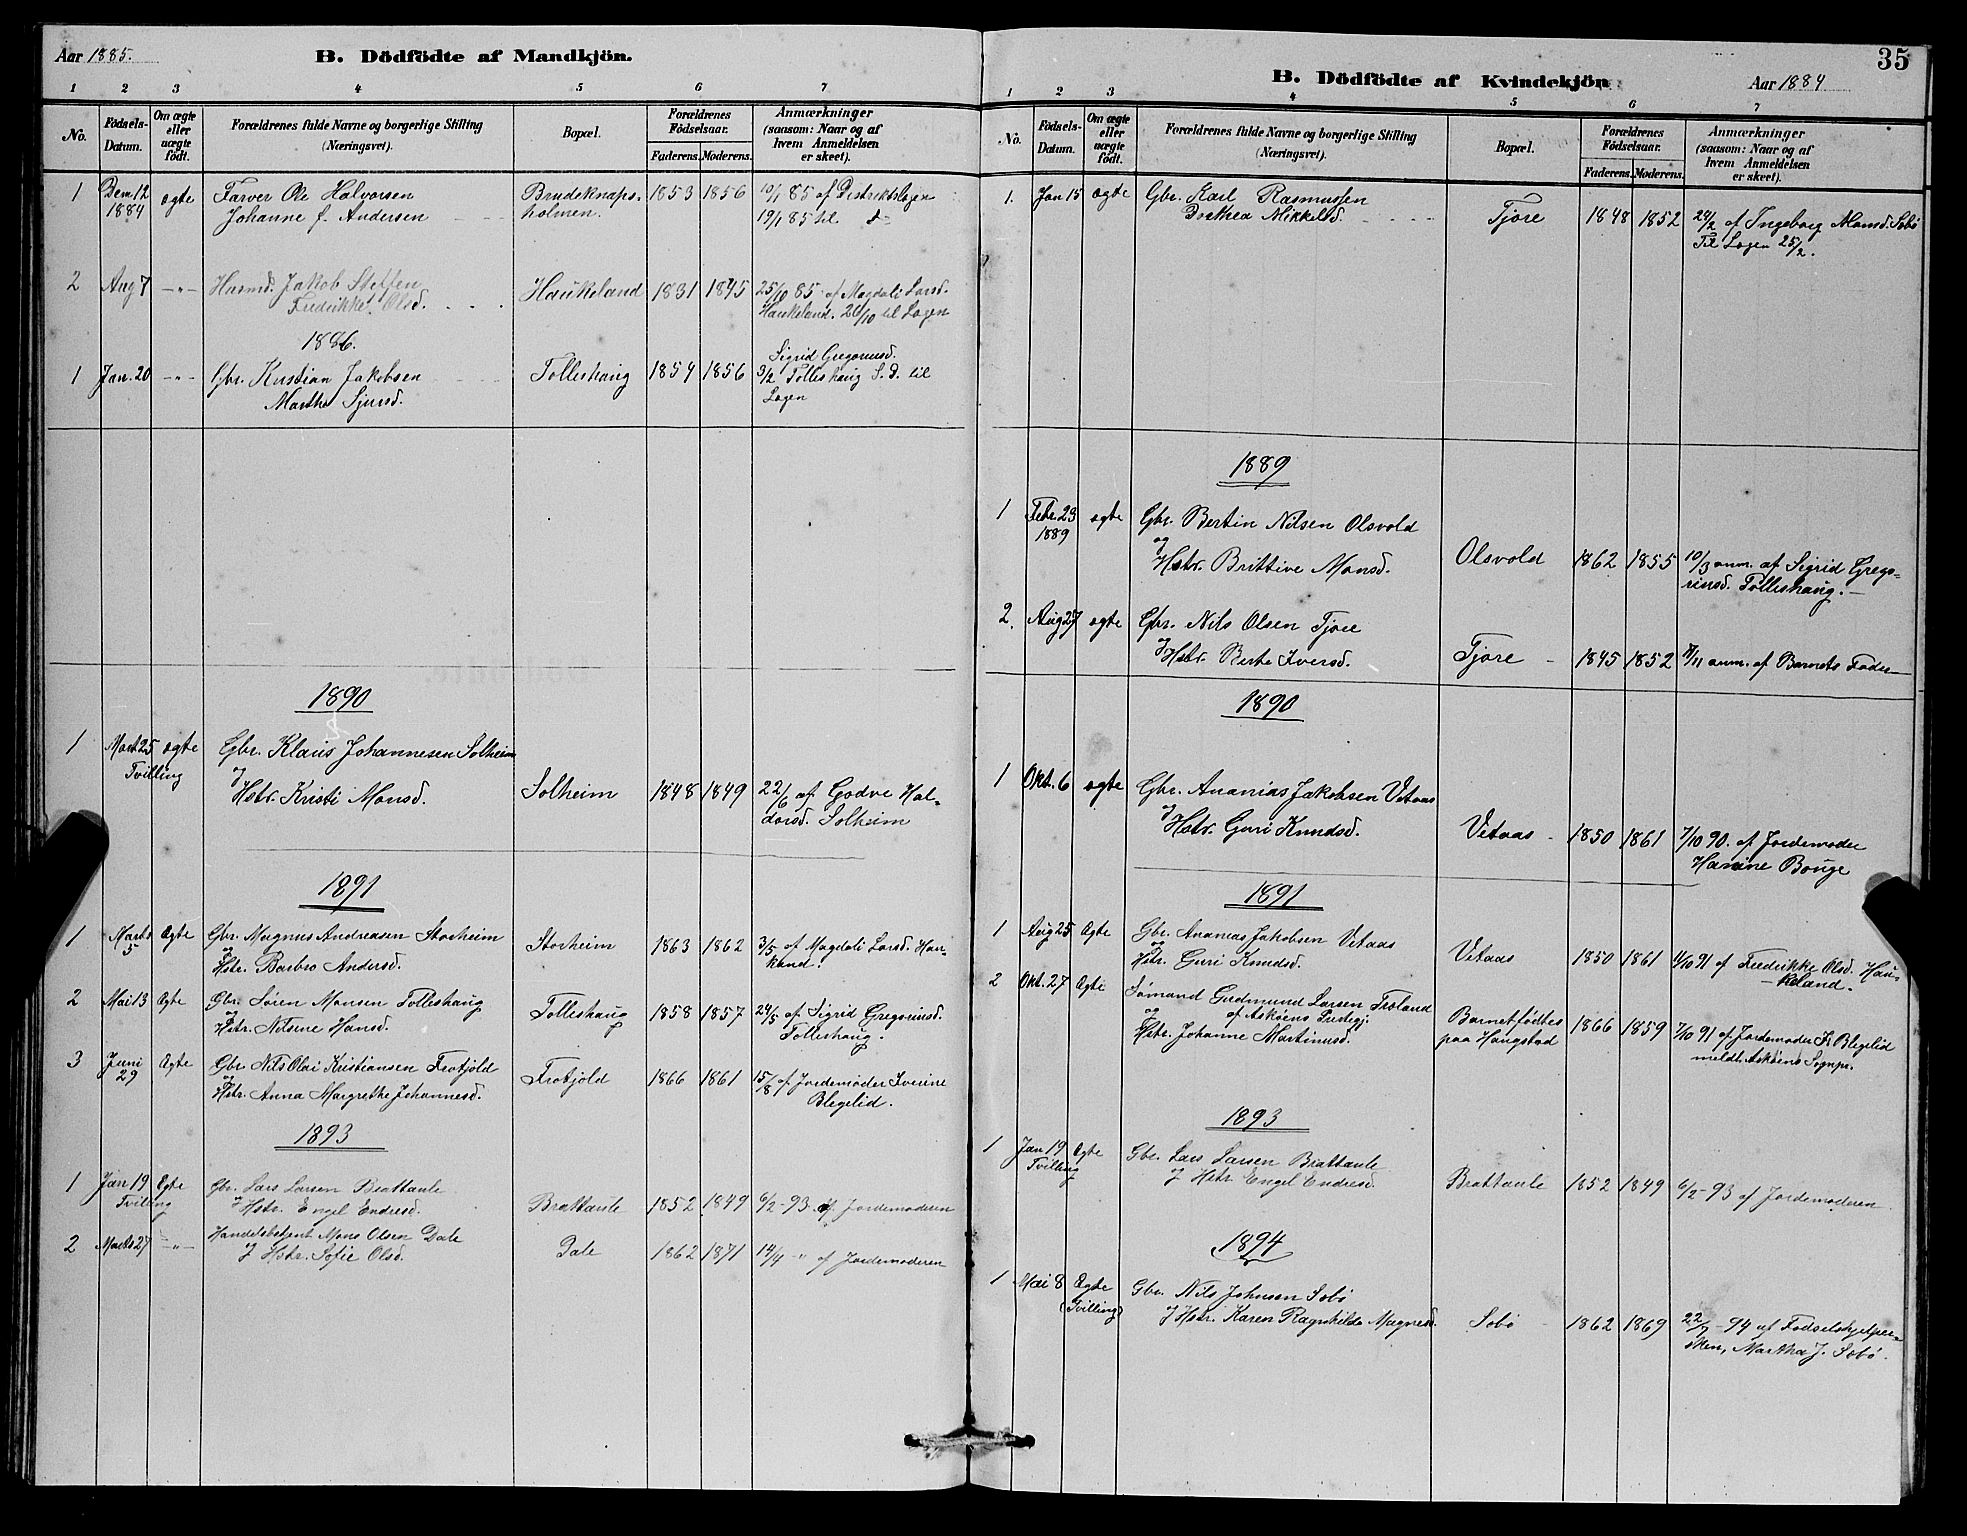 Aar 1885.
B. Dödfödte af Mandkjön.
1 2 3 4 5 6 7
No.
Födsels-Datum.
Om ægte eller uægte födt.
Forældrenes fulde Navne og borgerlige Stilling
(Næringsvei).
Bopæl.
Forældrenes Födselsaar.
Faderens. Moderens.
Anmærkninger
(saasom: Naar og af
hvem Anmeldelsen
er skeet).
1 Dem 12 ægte Farver Ole Halvorsen Brudeknaps- 1853 1856 10/1 85 af Distriktslægen
1884 Johanne f. Andersen holmen. 19/1 85 til
2 Aug 7 -"- Husmd. Jakob Steffen Haukeland 1831 1845 25/10 85 af Magdali Larsd.
Fredrikke Olsd. Haukeland. 26/10 til Lægen
1886.
Sigrid Gregoriusd.
1 Jan. 20 -"- Gbr. Kristian Jakobsen Tolleshaug 1854 1856 3/2 Tolleshaug S. D. til
Marthe Sjursd. Lægen
1890
1 Mart 25 ægte Gbr. Klaus Johannesen Solheim
Tvilling
Hstr. Kristi Monsd. Solheim 1848 1849 22/6 af Godve Hal-
dorsd. Solheim
1891
1 Marts Ægte Gbr. Magnus Andreasen Storheim Storheim 1863 1862 3/5 af Magdali Larsd. Hau-
5 og Hstr. Barbro Andersd. keland.
2 Mai 13 Ægte Gbr. Søren Monsen Tolleshaug Tolleshaug 1858 1857 24/5 af Sigrid Gregoriusd.
og Hstr. Nilsine Hansd. Tolleshaug.
3 Juni Ægte Gbr. Nils Olai Kristiansen Frotjold Frotjold 1866 1861 15/8 af Jordemoder Iverine
29 og Hstr. Anna Margrethe Johannesd. Blegelid.
1893
1 Jan 19 Ægte Gbr. Lars Larsen Brattaule
Tvilling Hstr. Engel Endresd. Brattaule 1852 1849 6/2-93 af Jordemoderen
2 Marts 27 -"- Handelsbetjent Mons Olsen Dale
Hstr. Sofie Olsd. Dale 1862 1871 14/4 " af Jordemoderen
35
B. Dödfödte af Kvindekjön
Aar 1884
1 2 3 4 5 6 7
No.
Födsels-Datum.
Om ægte eller uægte födt.
Forældrenes fulde Navne og borgerlige Stilling
(Næringsvei).
Bopæl.
Forældrenes Födselsaar.
Faderens. Moderens.
Anmærkninger
(saasom: Naar og af
hvem Anmeldelsen
er skeet).
1. Jan 15 ægte Gbr. Karl Rasmussen
Dorthea Mikkelsd. Tjore 1848 1852 24/2 af Ingeborg Monsd. Sæbø
Til Lægen 25/2.
1889
1 Febr. 23 ægte Gbr. Bertin Nilsen Olsvold
1889 og
Hstr. Brittive Monsd. Olsvold 1862 1855 10/3 anm. af Sigrid Grego-
riusd. Tolleshaug.
2. Aug 27 ægte Gbr. Nils Olsen Tjore
Hstr. Berte Iversd. Tjore 1845 1852 /11 anm. af Barnets Fader
1890
1 Okt. 6 ægte Gbr. Ananias Jakobsen Vetaas
Hstr. Guri Knudsd. Vetaas 1850 1861 7/10 90. af Jordemoder
Hansine Bouge
1891
1 Aug 25 Ægte Gbr. Ananias Jakobsen Vetaas
og Hstr. Guri Knudsd. Vetaas 1850 1861 4/10 91 af Fredrikke Olsd. Hau-
keland.
2 Okt. 27 Ægte Sømand Gudmund Larsen Troland
og af Askøens Prstegj.
Hstr. Johanne Martinusd. Barnet fødtes 1866 1859 7/10 91 af Jordemoder I. Blegelid
paa Haugstad meldt Askøens Sognpr.
1893
1 Jan 19 Ægte Gbr. Lars Larsen Brattaule
Tvilling Hstr. Engel Endresd Brattaule 1852 1849 6/2-93 af Jordemoderen
1894
1 Mai 8 Ægte Gbr. Nils Johnsen Sæbø
(Tvilling) Hstr. Karen Ragnhilda Magnesd. Sæbø 1862 1869 22/7-94 af Fødselshjelper-
sken, Martha J. Sæbø.